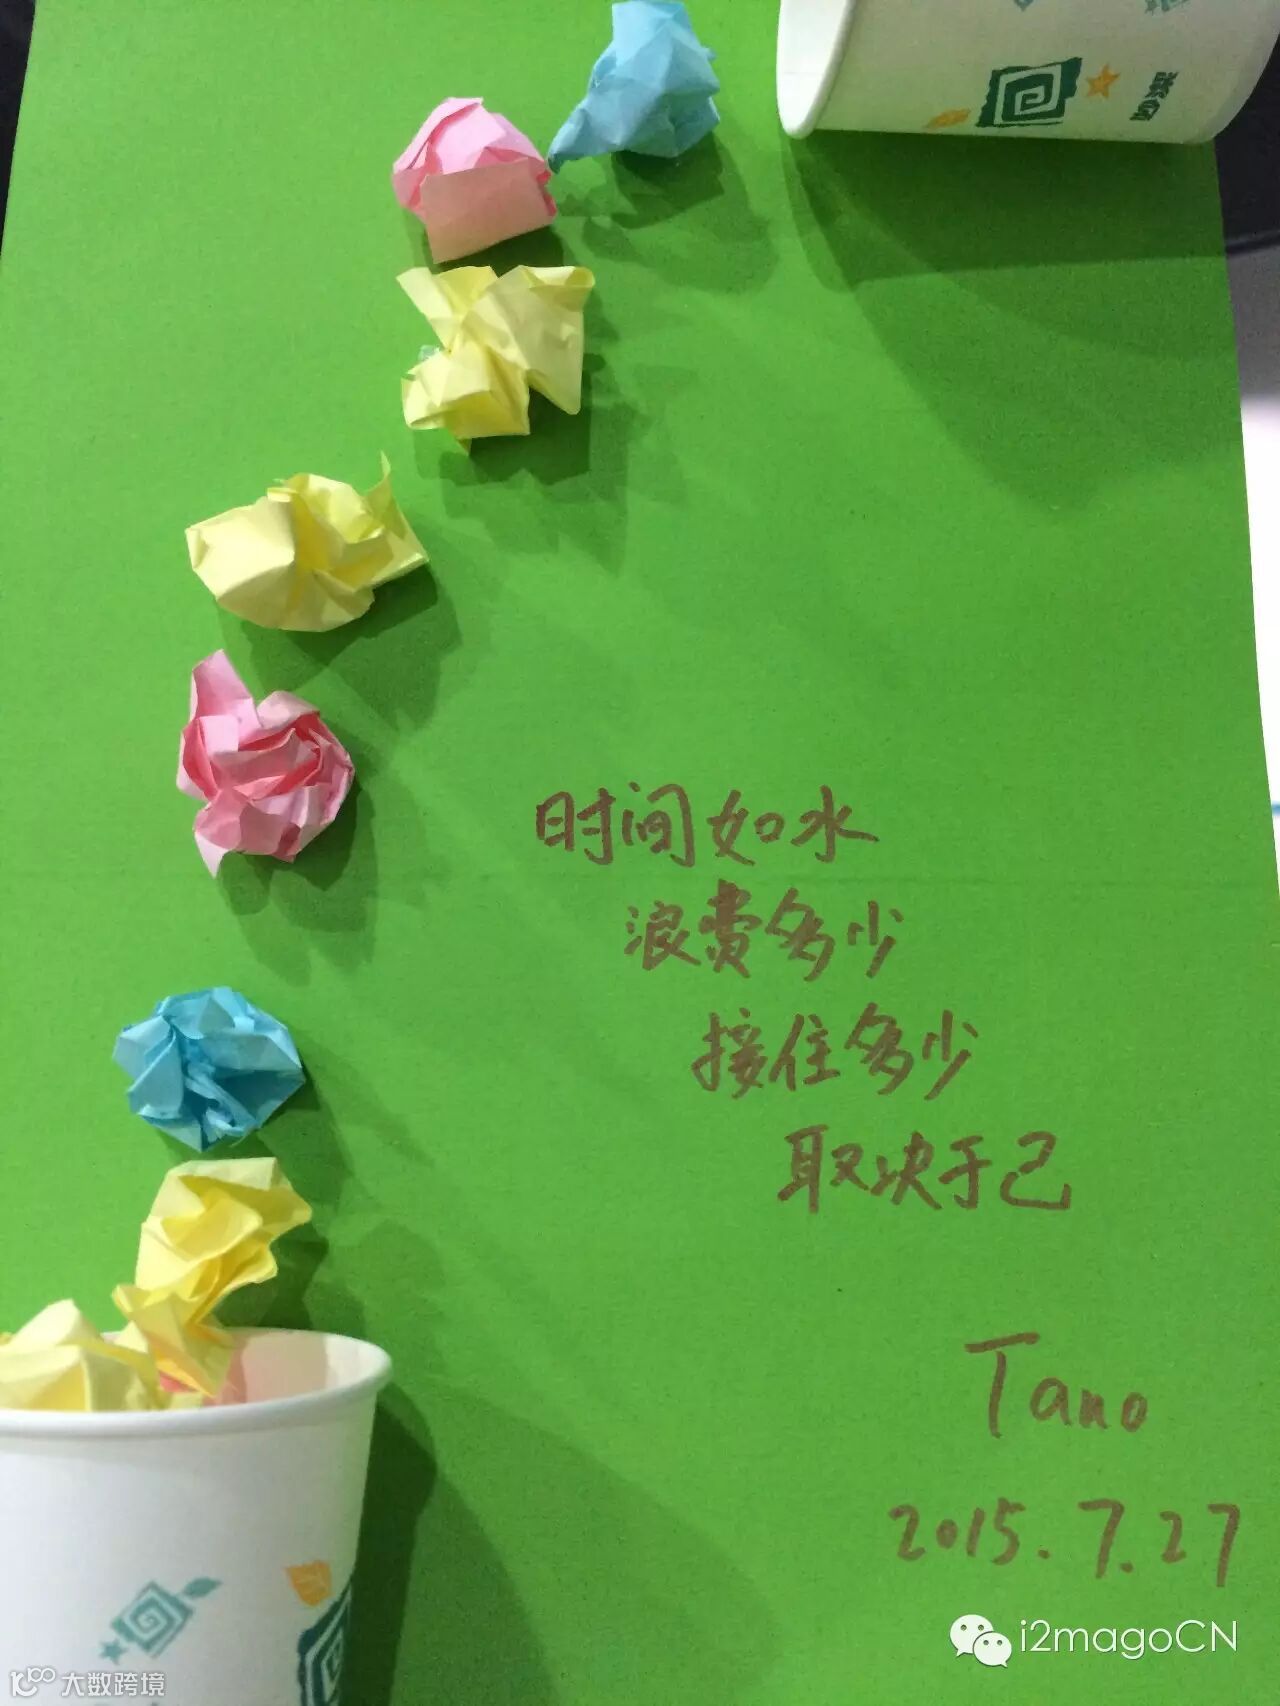 时间如水
浪费多少
接住多少
取决于己
Tano
2015.7.27
i2magoCN
大数跨境